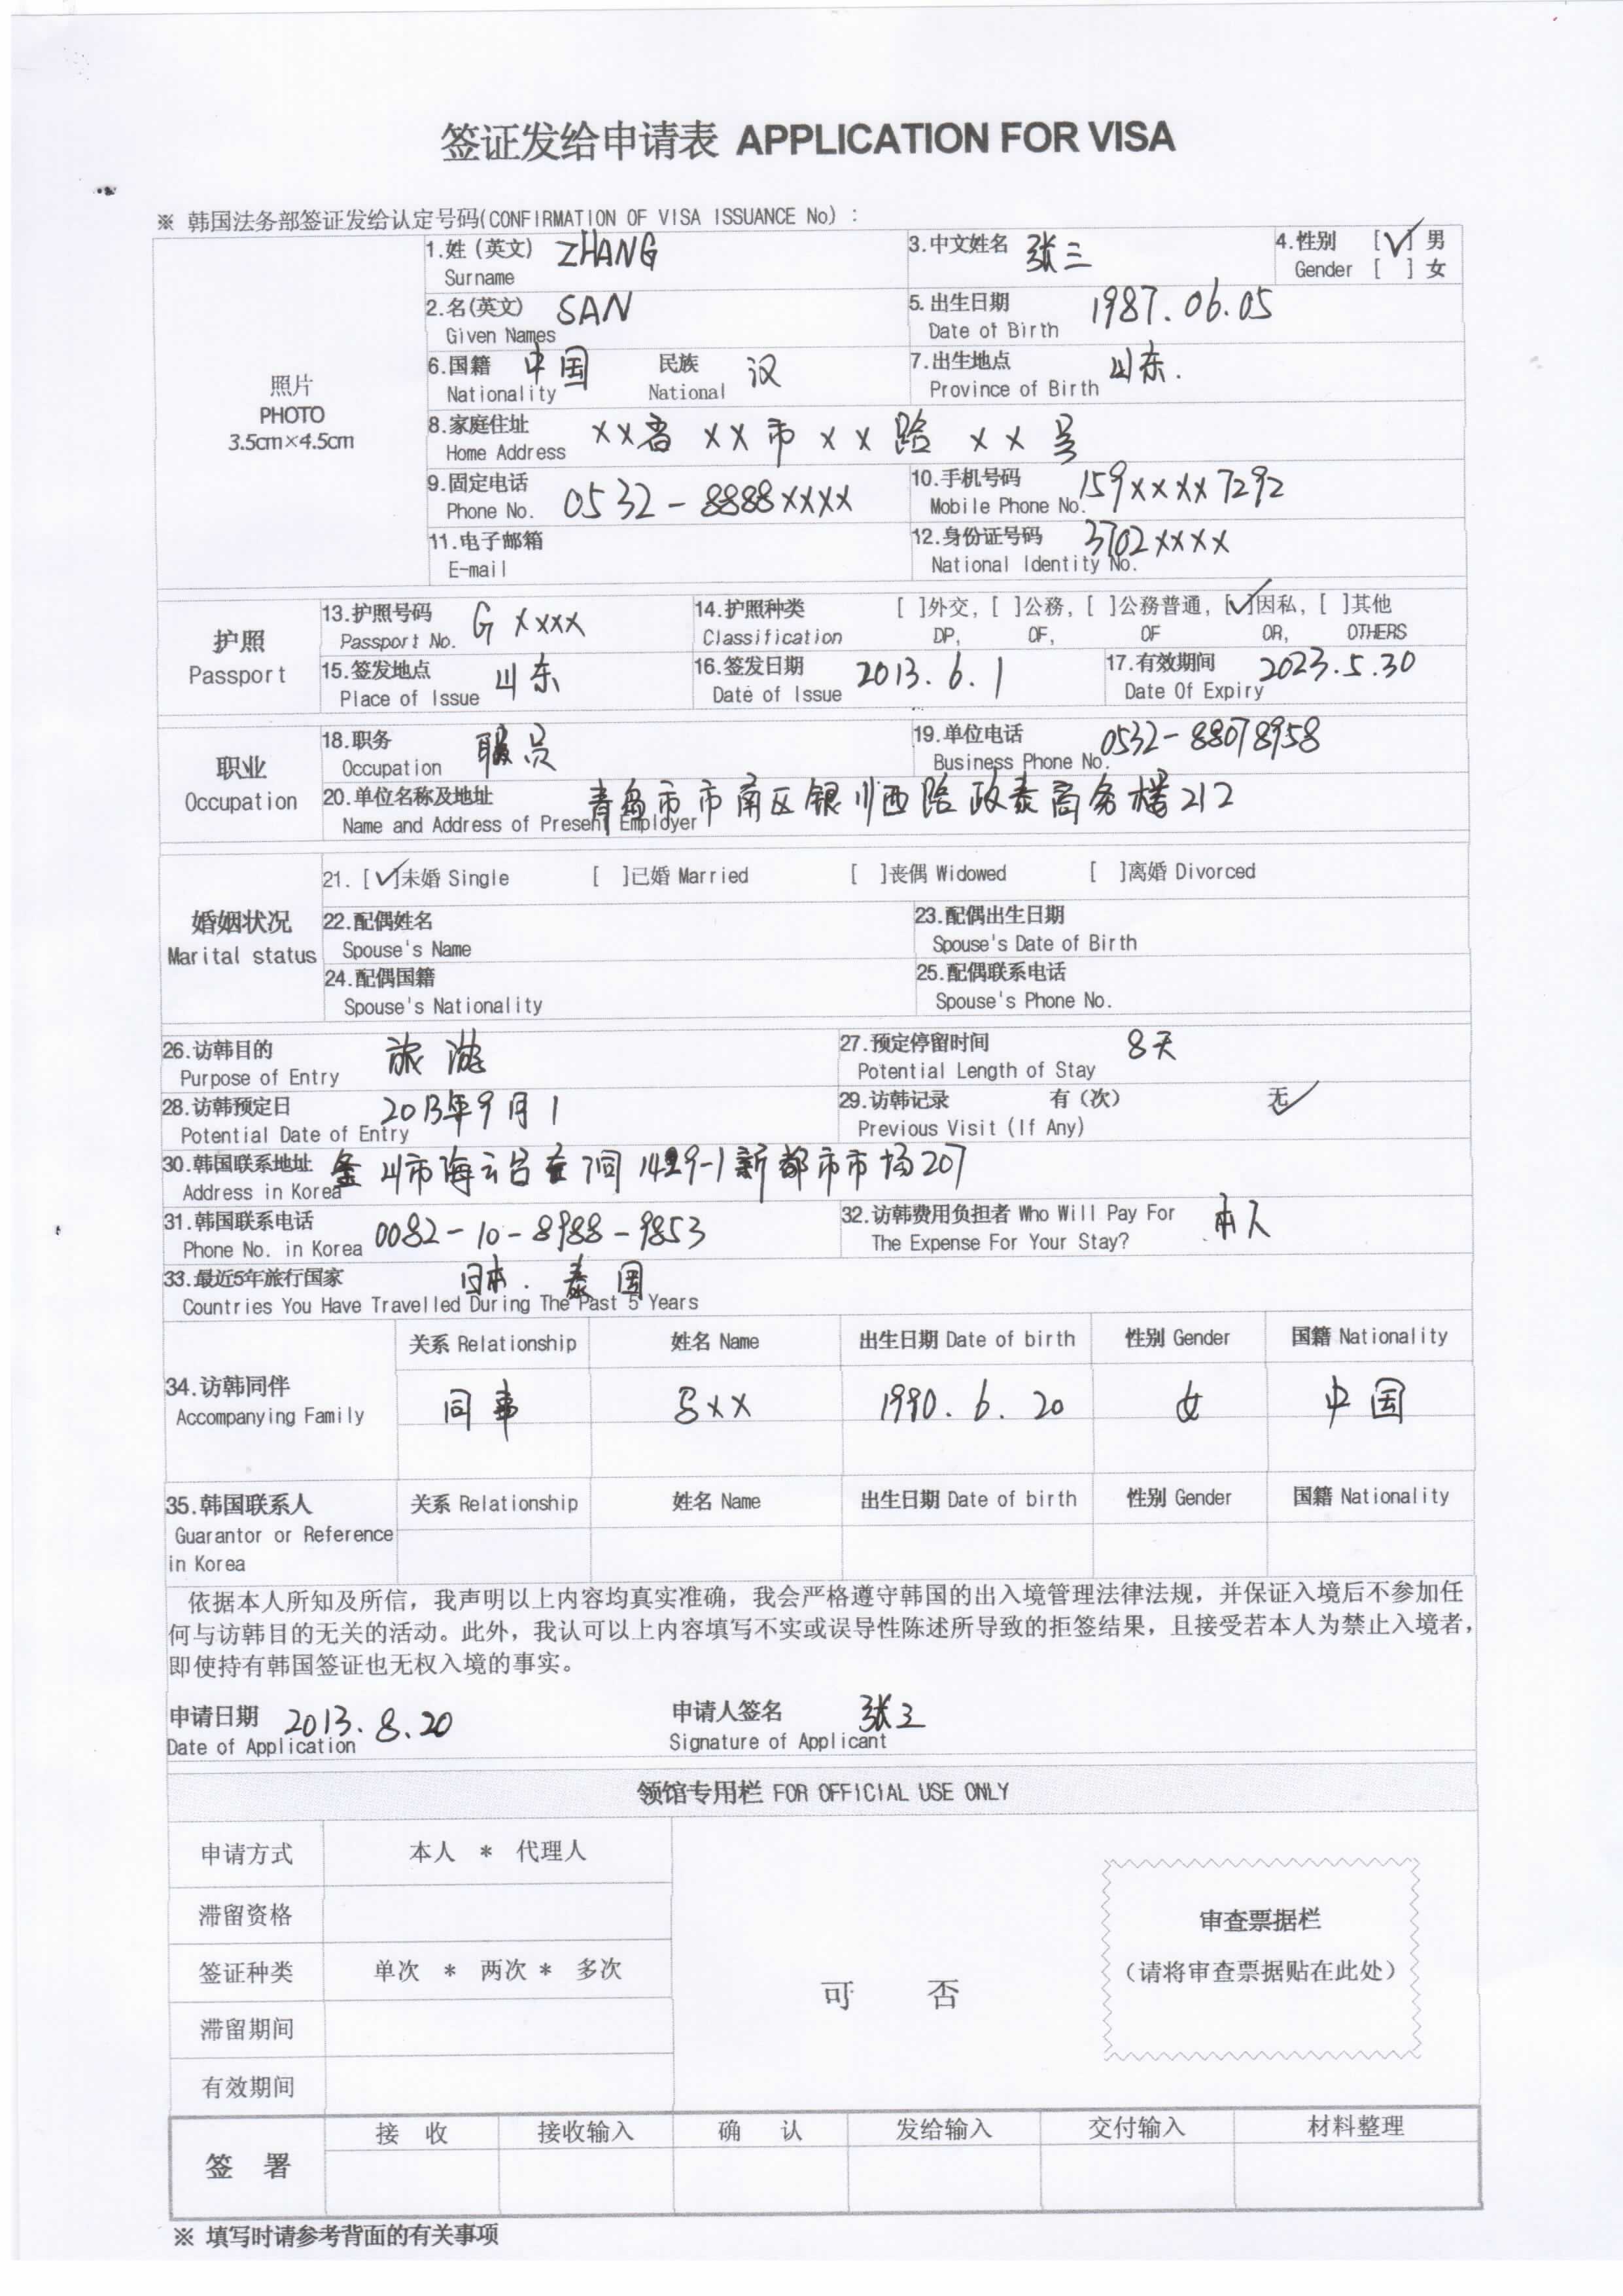 签证发给申请表 APPLICATION FOR VISA
※ 韩国法务部签证发给认定号码(CONFIRMATION OF VISA ISSUANCE No) :
照片
PHOTO
3.5cm×4.5cm
1.姓 (英文) ZHANG
Surname
3.中文姓名 张三
4.性别 [√] 男
Gender [ ] 女
2.名(英文) SAN
Given Names
5.出生日期 1987.06.05
Date of Birth
6.国籍 中国 民族 汉
Nationality National
7.出生地点 山东.
Province of Birth
8.家庭住址 XX省 XX市 XX路 XX号
Home Address
9.固定电话 0532-8888XXXX
Phone No.
10.手机号码 159XXXX7292
Mobile Phone No.
11.电子邮箱
E-mail
12.身份证号码 3702XXXX
National Identity No.
护照
Passport
13.护照号码 G XXXX
Passport No.
14.护照种类 [ ]外交, [ ]公務, [ ]公務普通, [√]因私, [ ]其他
Classification DP, OF, OF OR, OTHERS
15.签发地点 山东
Place of Issue
16.签发日期 2013.6.1
Date of Issue
17.有效期间 2023.5.30
Date Of Expiry
职业
Occupation
18.职务 职员
Occupation
19.单位电话 0532-88078958
Business Phone No.
20.单位名称及地址 青岛市市南区银川西路政泰商务楼212
Name and Address of Present Employer
婚姻状况
Marital status
21. [√]未婚 Single [ ]已婚 Married [ ]丧偶 Widowed [ ]离婚 Divorced
22.配偶姓名
Spouse's Name
23.配偶出生日期
Spouse's Date of Birth
24.配偶国籍
Spouse's Nationality
25.配偶联系电话
Spouse's Phone No.
26.访韩目的 旅游
Purpose of Entry
27.预定停留时间 8天
Potential Length of Stay
28.访韩预定日 2013年9月1
Potential Date of Entry
29.访韩记录 有 (次) 无√
Previous Visit (If Any)
30.韩国联系地址 釜山市海云台 洞1429-1新都市市场207
Address in Korea
31.韩国联系电话 0082-10-8988-9853
Phone No. in Korea
32.访韩费用负担者 Who Will Pay For 本人
The Expense For Your Stay?
33.最近5年旅行国家 日本. 泰国
Countries You Have Travelled During The Past 5 Years
34.访韩同伴
Accompanying Family
关系 Relationship 姓名 Name 出生日期 Date of birth 性别 Gender 国籍 Nationality
同事 XX 1990.6.20 女 中国
35.韩国联系人
Guarantor or Reference
in Korea
关系 Relationship 姓名 Name 出生日期 Date of birth 性别 Gender 国籍 Nationality
依据本人所知及所信，我声明以上内容均真实准确，我会严格遵守韩国的出入境管理法律法规，并保证入境后不参加任
何与访韩目的无关的活动。此外，我认可以上内容填写不实或误导性陈述所导致的拒签结果，且接受若本人为禁止入境者，
即使持有韩国签证也无权入境的事实。
申请日期 2013.8.20
Date of Application
申请人签名 张三
Signature of Applicant
领馆专用栏 FOR OFFICIAL USE ONLY
申请方式 本人 * 代理人
滞留资格
签证种类 单次 * 两次 * 多次
滞留期间
有效期间
可 否
审查票据栏
（请将审查票据贴在此处）
签 署
接 收 接收输入 确 认 发给输入 交付输入 材料整理
※ 填写时请参考背面的有关事项